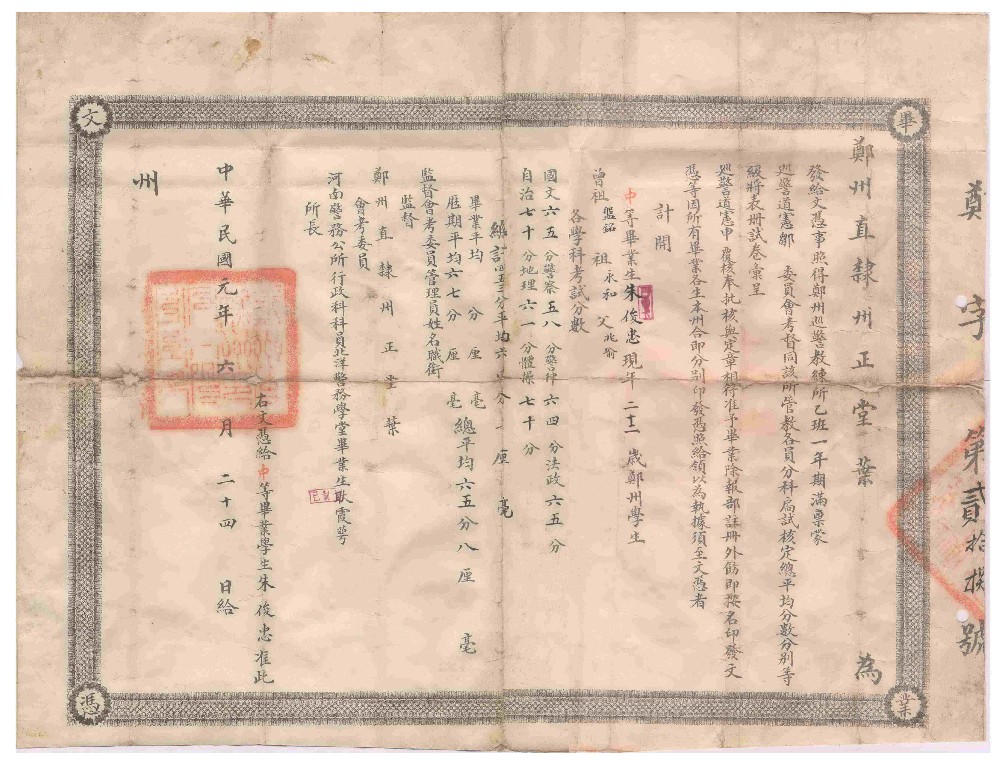 鄭字第貳拾號
畢業文憑
鄭州直隸州正堂葉 為
發給文憑事照得鄭州巡警教練所乙班一年期滿稟蒙
巡警道憲鄒 委員會考督同該所管教各員分科扃試核定總平均分數分別等
級將表冊試卷彙呈
巡警道憲申 覆核奉批核與定章相符准予畢業除報部註冊外飭即撰名印發文
憑等因所有畢業各生本州合即分別印發憑照給領以為執據須至文憑者
計開
中等畢業生朱俊忠現年二十二歲鄭州學生
曾祖 盤銘 祖 永和 父 兆瑜
各學科考試分數
國文六五分警察五八分警律六四分法政六五分
自治七十分地理六一分體操七十分
總計四五三分平均六 分 厘 毫
畢業平均 分 厘 毫
歷期平均六七分 厘 毫
總平均六五分八厘 毫
監督會考委員管理員姓名職銜
監督
鄭州直隸州正堂葉
會考委員
河南警務公所行政科科員北洋警務學堂畢業生耿霞萼
所長
右文憑給中等畢業學生朱俊忠准此
中華民國元年六月二十四日給
州